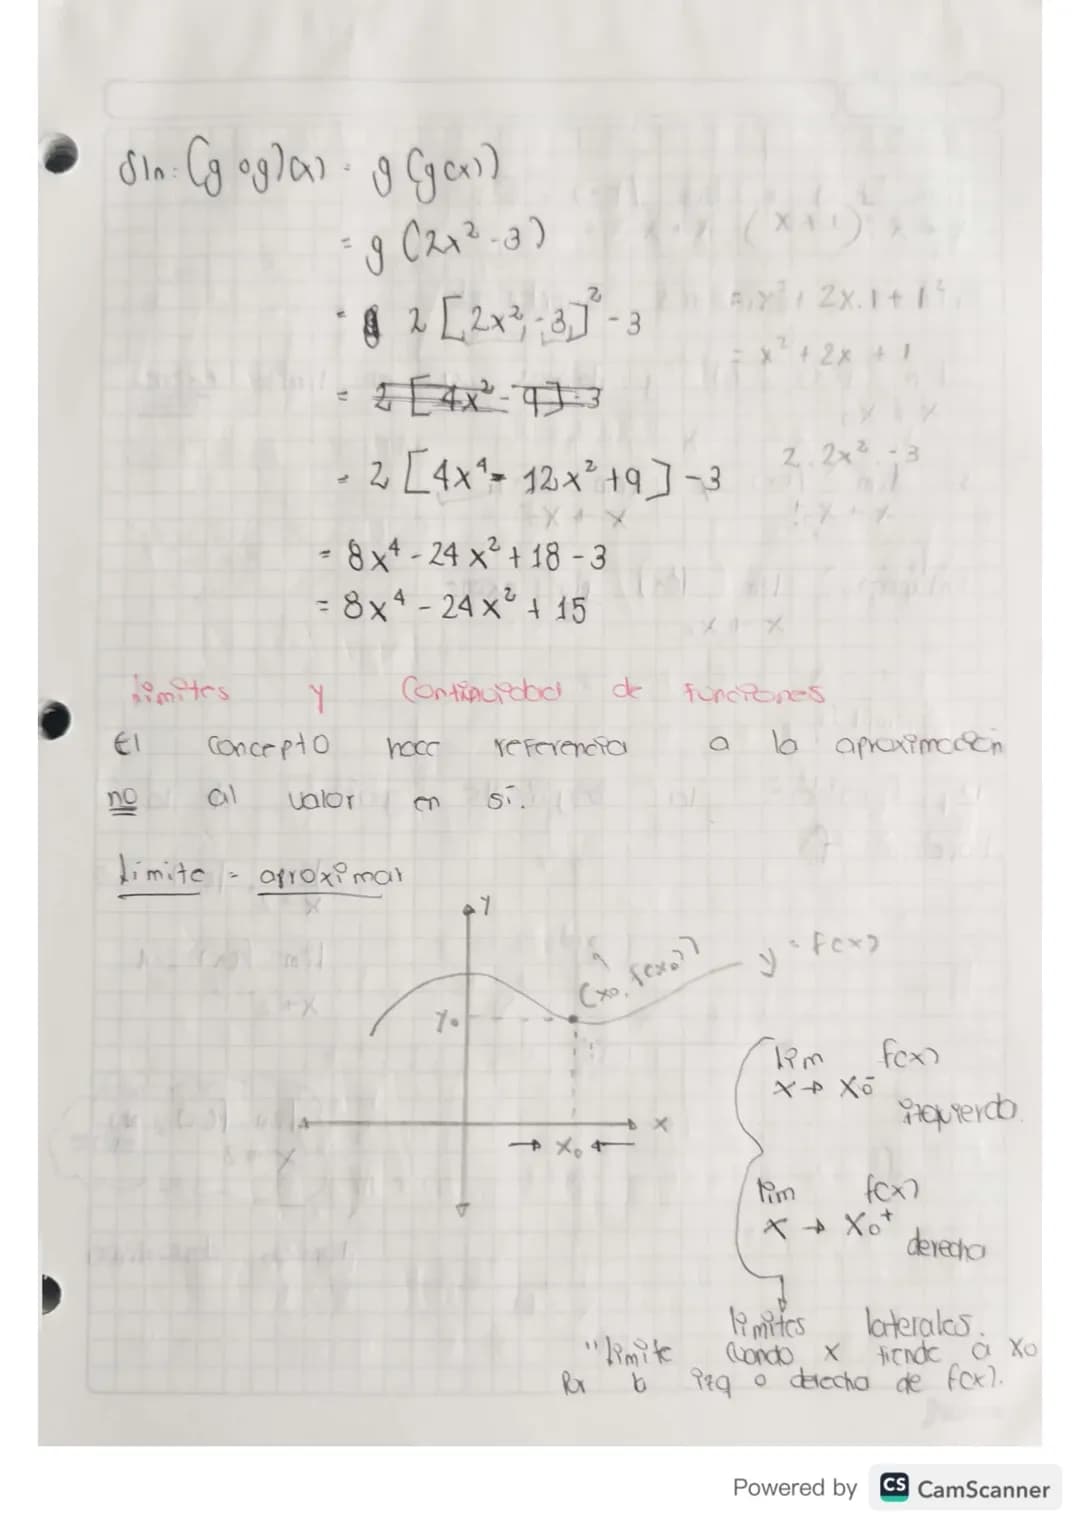 Sln: (g o g)(x) = g (g(x))
= g (2x² - 3)
= 2 [2x² - 3]² - 3
= 2 [4x² - 9] - 3
= 2 [4x⁴ - 12x² + 9] - 3
= 8x⁴ - 24x² + 18 - 3
= 8x⁴ - 24x² + 15
límites y Continuidad de funciones
El concepto hace referencia a la aproximación
no al valor en sí.
límite = aproximar
y
(x₀, f(x₀))
y = f(x)
y₀
x
→ x₀ ←
lim f(x)
x → x₀⁻
izquierdo
lim f(x)
x → x₀⁺
derecha
límites laterales.
"límite cuando x tiende a x₀
Por la izq o derecha de f(x).
Powered by CS CamScanner